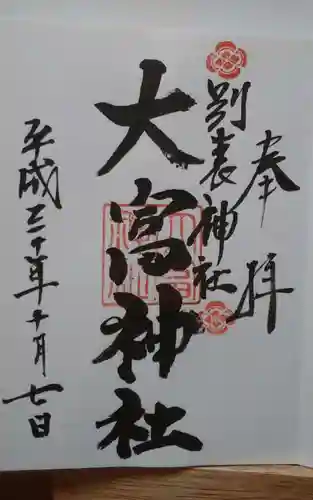 奉拝
別表神社
大宮神社
平成三十年十月七日